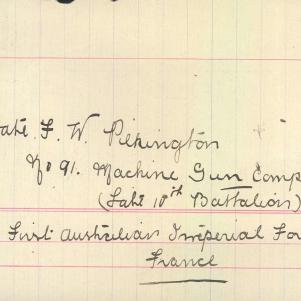 ate F. W. Pekington
No 91. Machine Gun Comp
(Late 10th Battalion)
First Australian Imperial For
France